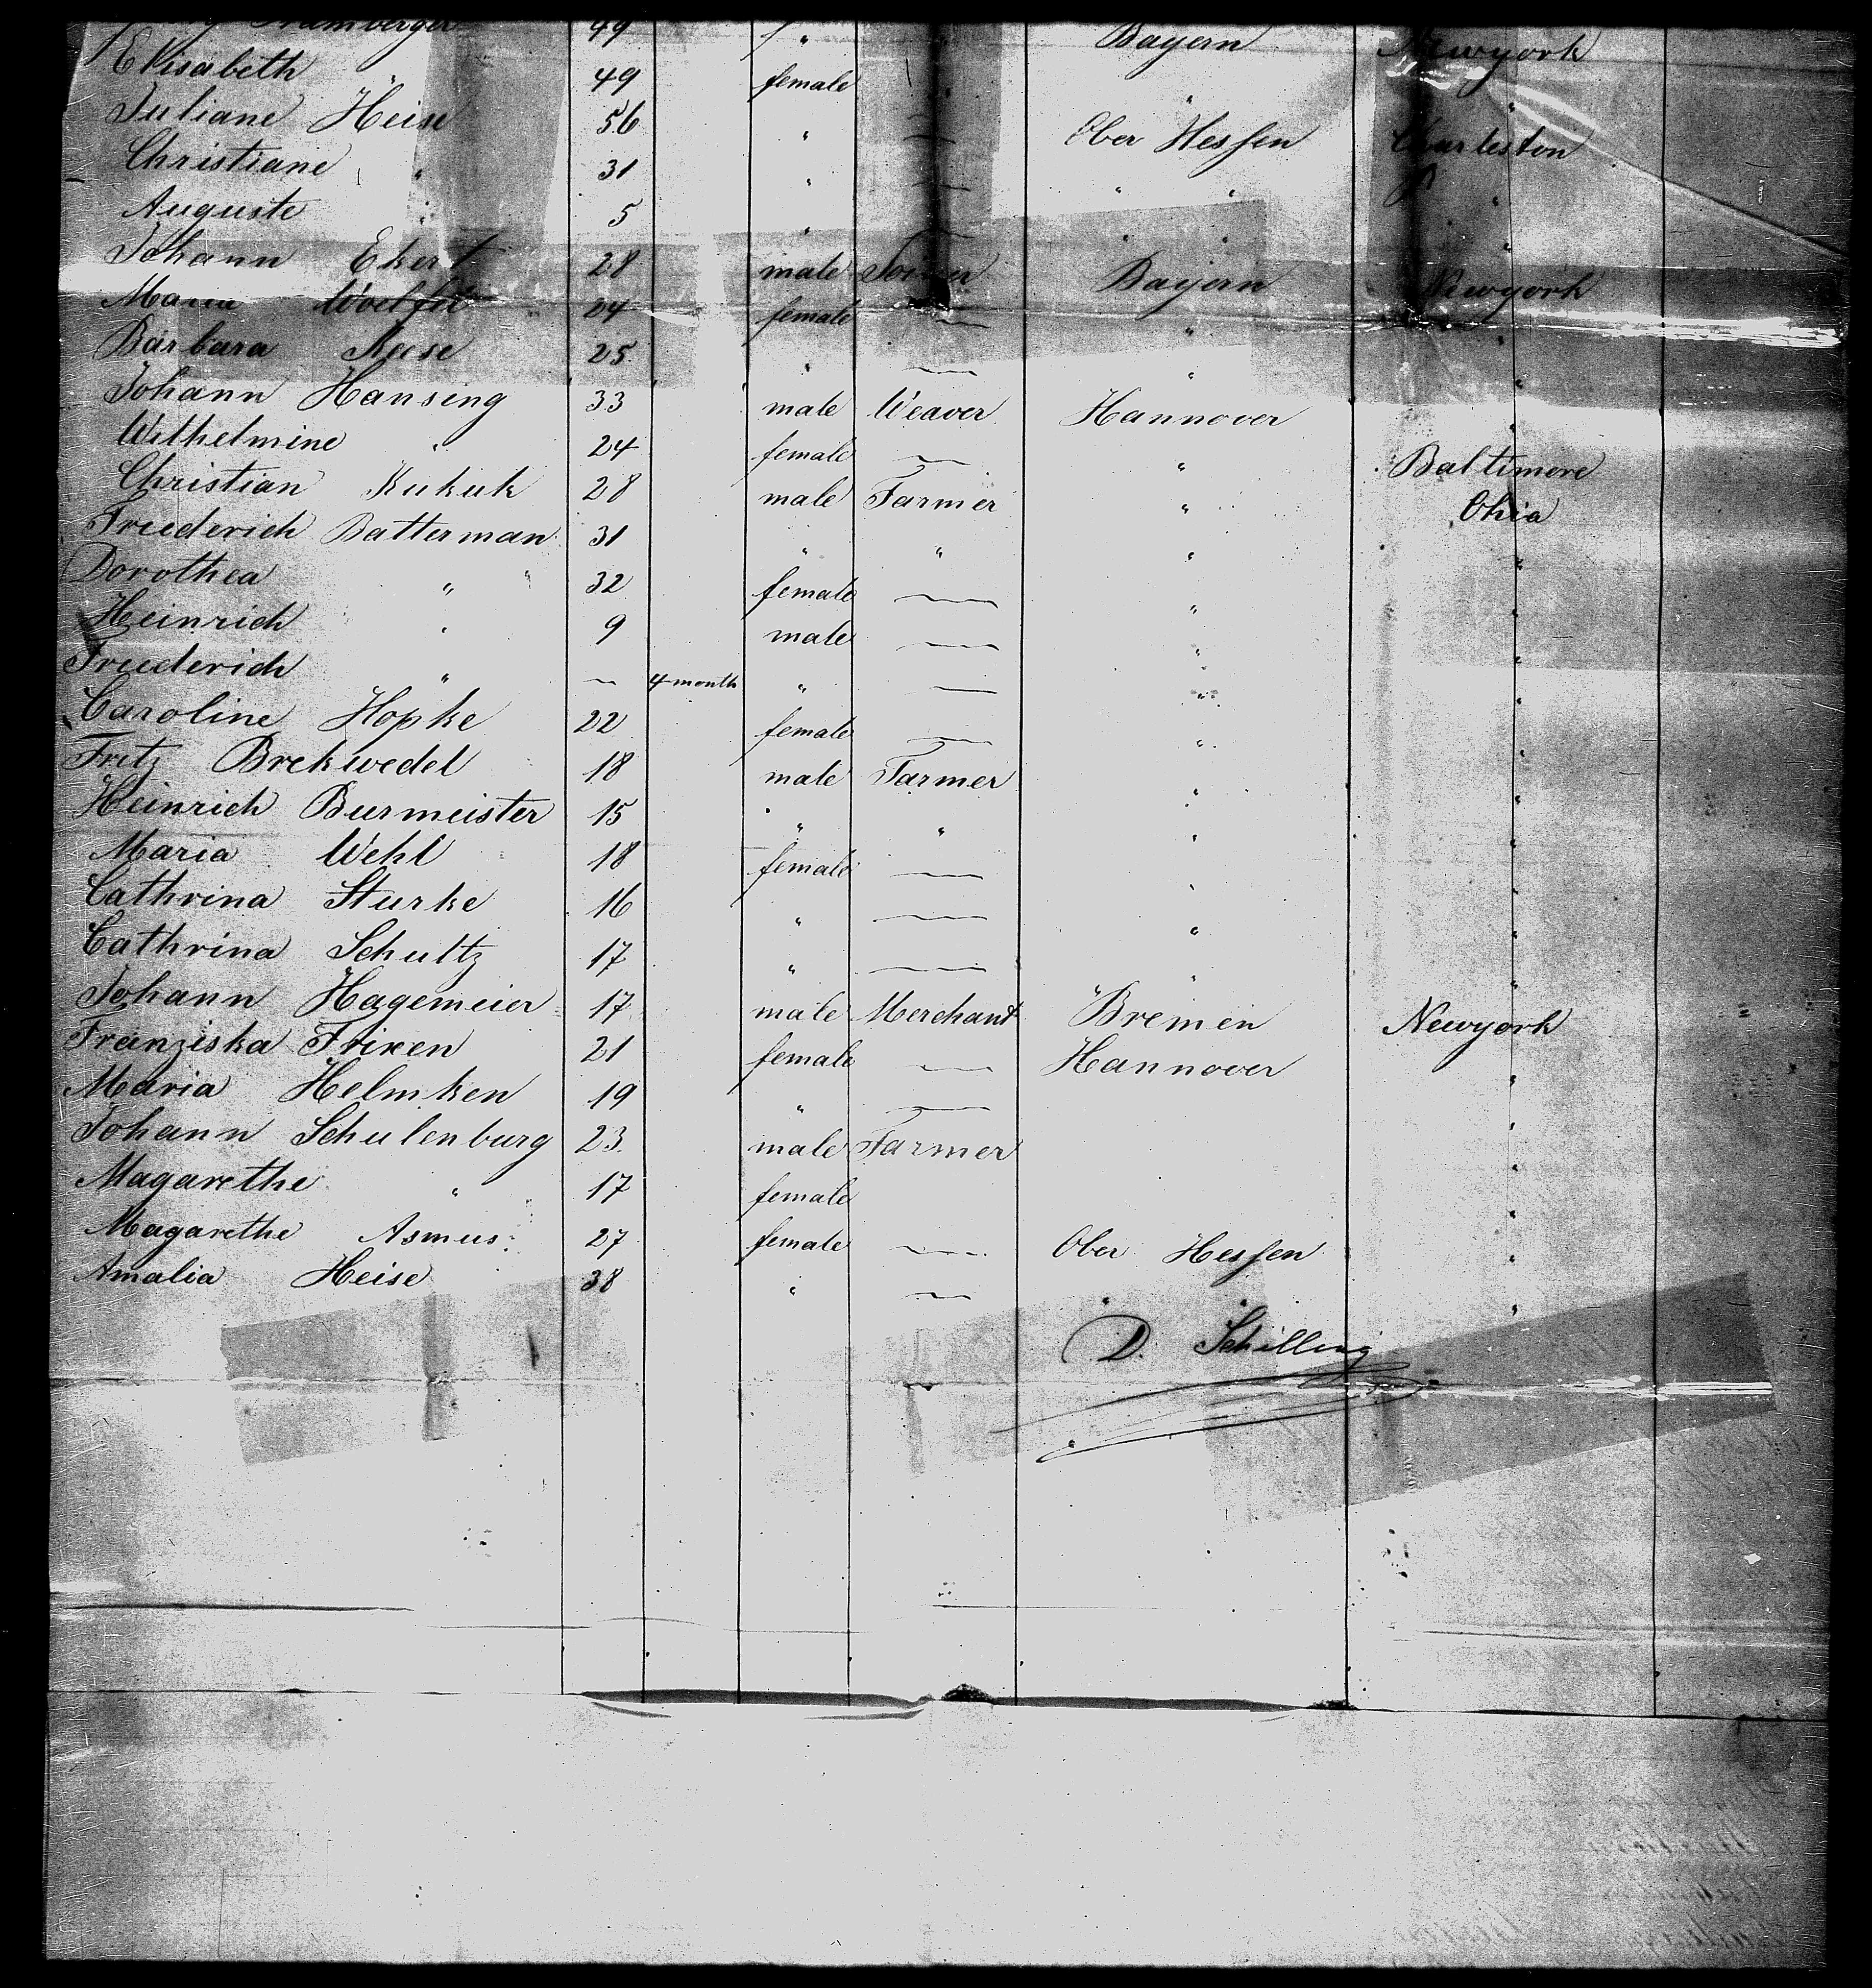 49 " Bayern Newyork
Elisabeth " 49 female " "
Juliane Heise 56 " Ober Hessen Charleston
Christiane " 31 " " " "
Auguste " 5 " " " "
Johann Ekert 28 male Bayern Newyork
Maria 24 female " "
Barbara 25 " " "
Johann Hansing 33 male Weaver Hannover "
Wilhelmine " 24 female " Baltimore
Christian Kukuk 28 male Farmer " Ohia
Friederich Batterman 31 " " " "
Dorothea " 32 female " "
Heinrich " 9 male " "
Friederich " 4 month " " "
Caroline Hopke 22 female " "
Fritz Brekwedel 18 male Farmer " "
Heinrich Burmeister 15 " " " "
Maria Wehl 18 female " "
Cathrina Sturke 16 " " "
Cathrina Schultz 17 " " "
Johann Hagemeier 17 male Merchant Bremen Newyork
Franziska Frixen 21 female Hannover "
Maria Helmken 19 " "
Johann Schulenburg 23 male Farmer "
Magarethe " 17 female "
Magarethe Asmus 27 female Ober Hessen "
Amalia Heise 38 " " " "
D. Schilling